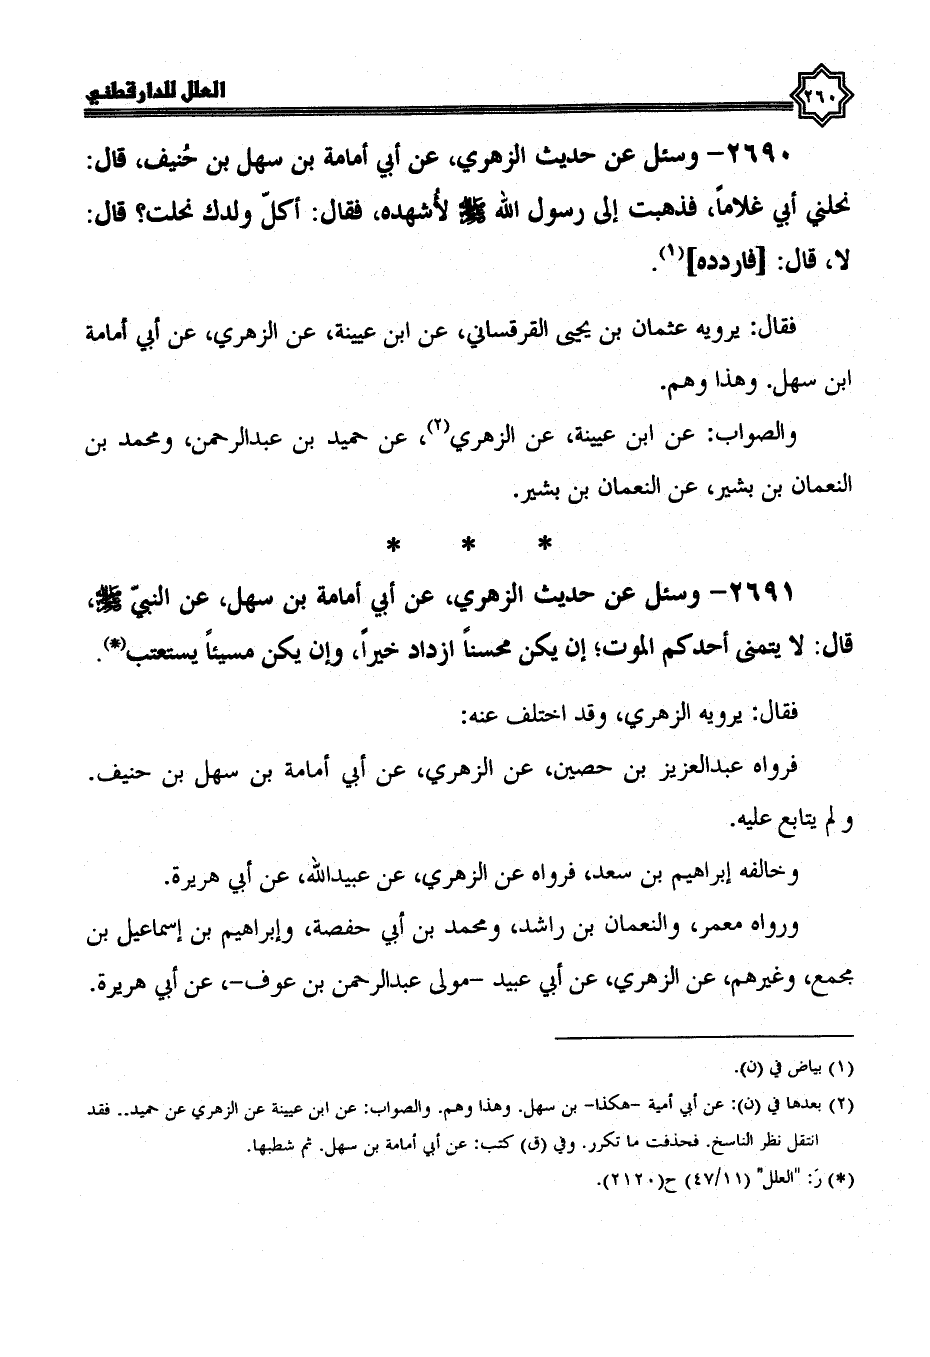 العلل للدارقطني
٢٦٠
٢٦٩٠- وسئل عن حديث الزهري، عن أبي أمامة بن سهل بن حُنيف، قال:
نحلني أبي غلاماً، فذهبت إلى رسول الله ﷺ لأُشهده، فقال: أكلّ ولدك نحلت؟ قال:
لا، قال: [فاردده](١).
فقال: يرويه عثمان بن يحيى القرقساني، عن ابن عيينة، عن الزهري، عن أبي أمامة
ابن سهل. وهذا وهم.
والصواب: عن ابن عيينة، عن الزهري(٢)، عن حميد بن عبدالرحمن، ومحمد بن
النعمان بن بشير، عن النعمان بن بشير.
* * *
٢٦٩١- وسئل عن حديث الزهري، عن أبي أمامة بن سهل، عن النبيّ ﷺ،
قال: لا يتمنى أحدكم الموت؛ إن يكن محسناً ازداد خيراً، وإن يكن مسيئاً يستعتب(*).
فقال: يرويه الزهري، وقد اختلف عنه:
فرواه عبدالعزيز بن حصين، عن الزهري، عن أبي أمامة بن سهل بن حنيف.
و لم يتابع عليه.
وخالفه إبراهيم بن سعد، فرواه عن الزهري، عن عبيدالله، عن أبي هريرة.
ورواه معمر، والنعمان بن راشد، ومحمد بن أبي حفصة، وإبراهيم بن إسماعيل بن
مجمع، وغيرهم، عن الزهري، عن أبي عبيد -مولى عبدالرحمن بن عوف-، عن أبي هريرة.
(١) بياض في (ن).
(٢) بعدها في (ن): عن أبي أمية -هكذا- بن سهل. وهذا وهم. والصواب: عن ابن عيينة عن الزهري عن حميد.. فقد
انتقل نظر الناسخ. فحذفت ما تكرر. وفي (ق) كتب: عن أبي أمامة بن سهل. ثم شطبها.
(*) رَ: "العلل" (٤٧/١١) ح(٢١٢٠).